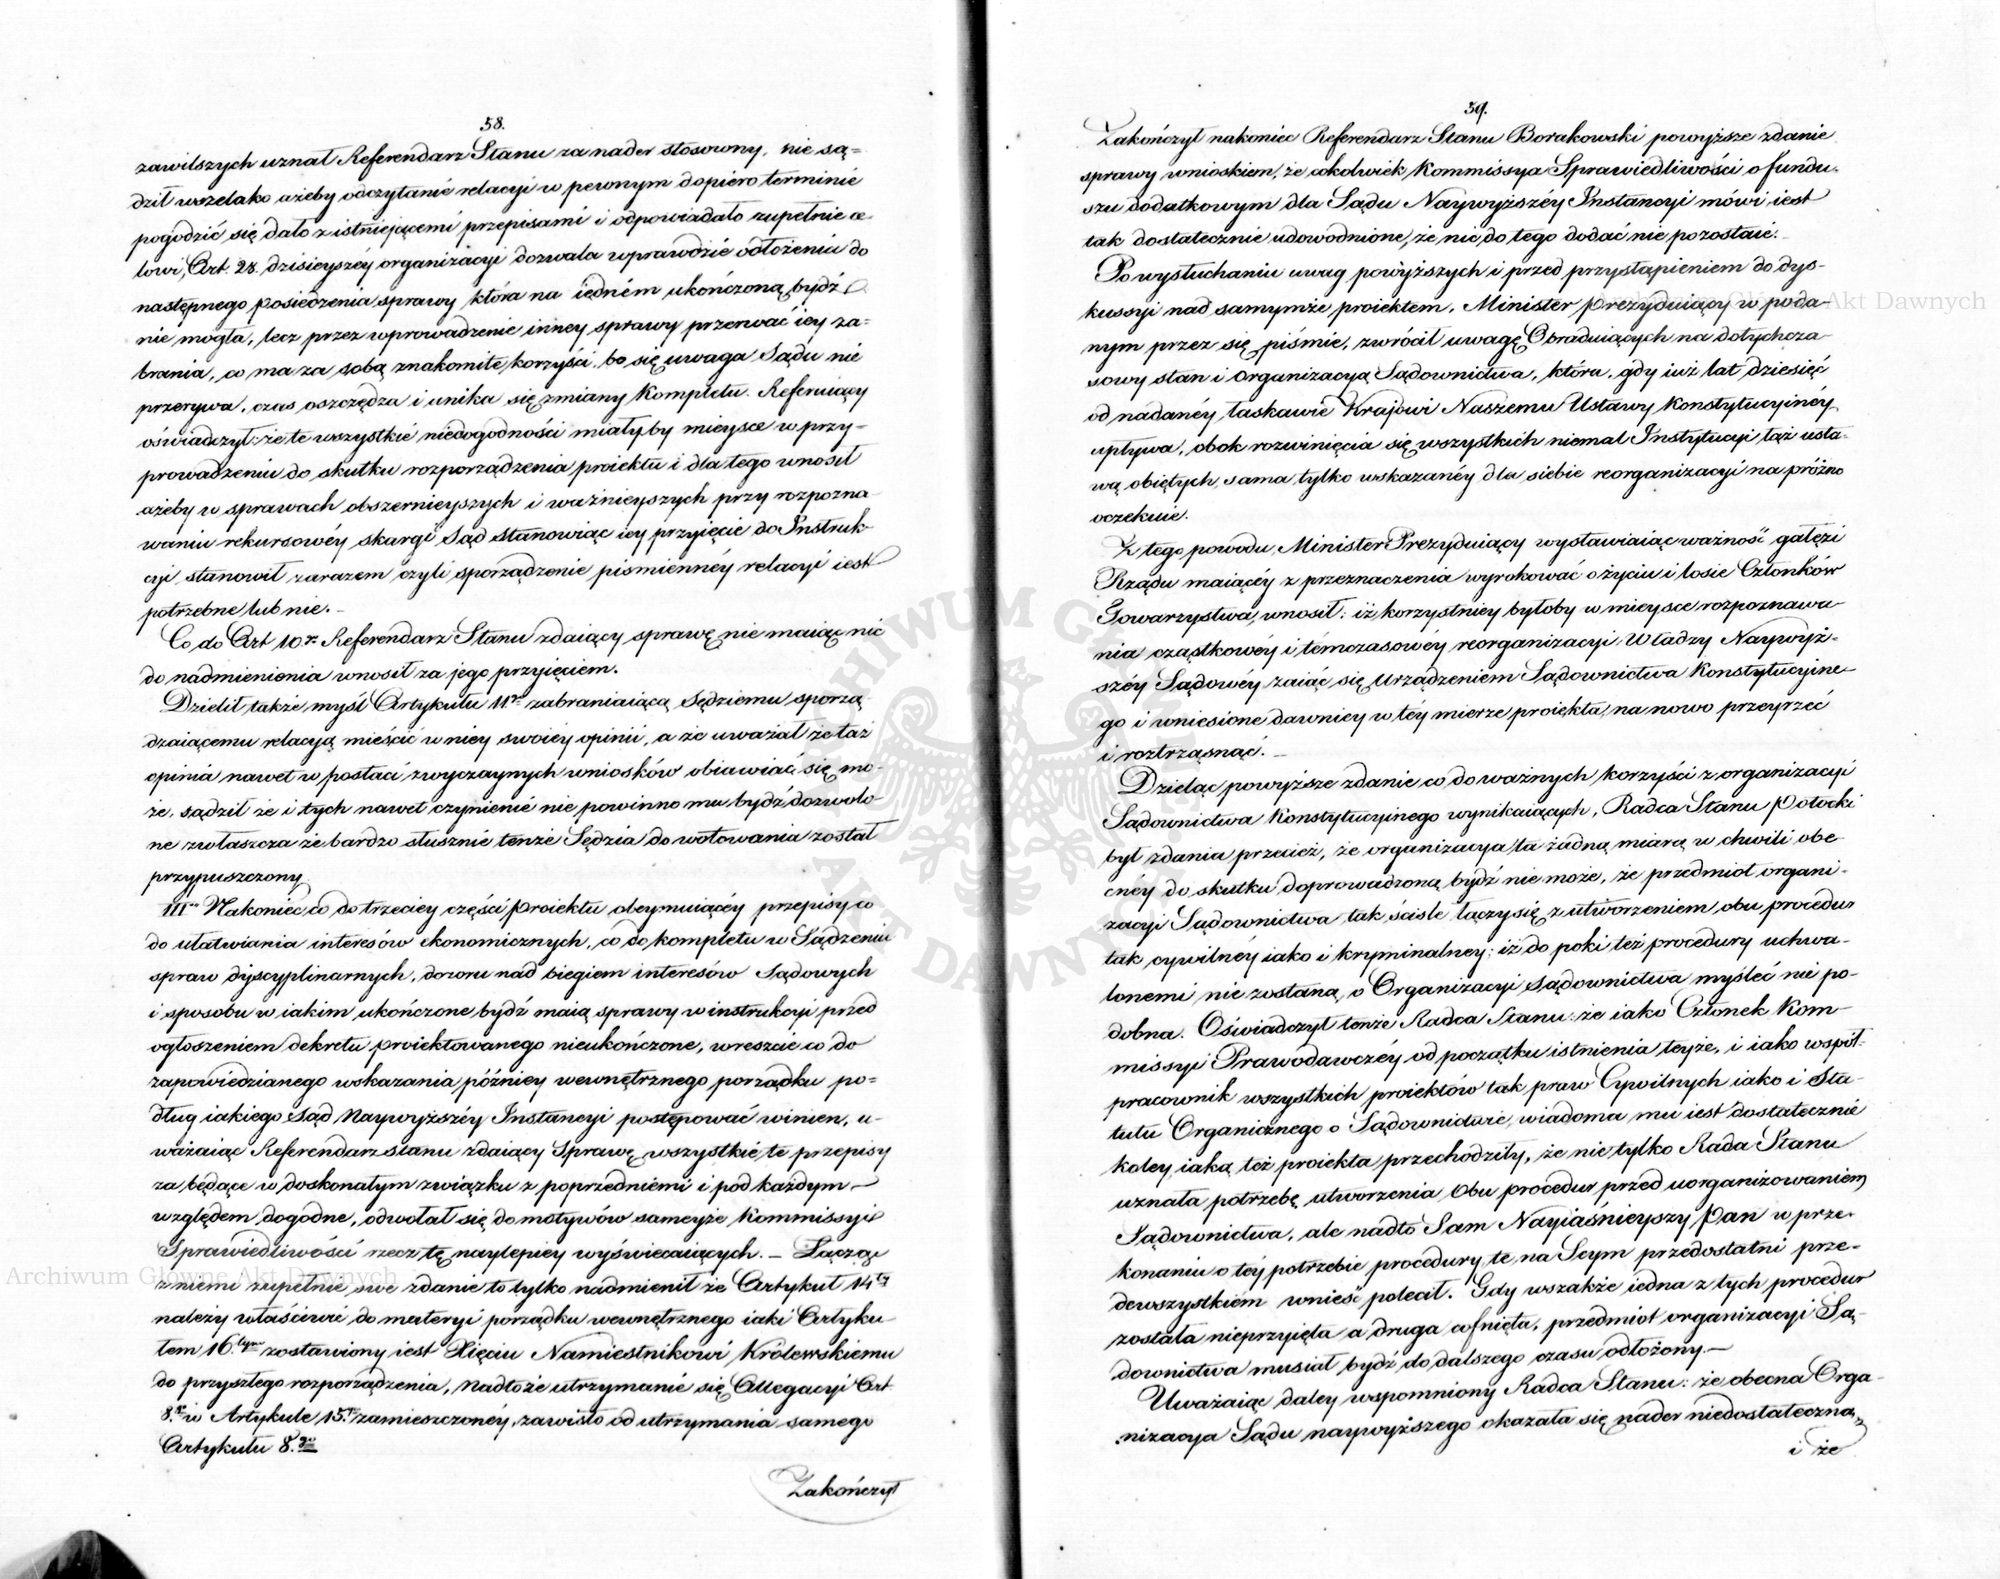 58.
zawilszych uznał Referendarz Stanu za nader stosowny, nie są=
dził wszelako ażeby odczytanié relacyi w pewnym dopiero terminié
pogodzić się dało z istniejącemi przepisami i odpowiadało zupełnie ce
lowi, Art. 28. dzisieyszéy organizacyi dozwala wprawdzié odłożeniu do
następnego posiedzenia sprawy która na iedném ukończoną bydź
nie mogła, lecz przez wprowadzenie inney sprawy przerwać iey za=
brania, co ma za sobą znakomite korzyści, bo się uwaga Sądu nie
przerywa, czas oszczędza i unika się zmiany Kompletu. Referuiący
oświadczył: że te wszystkié niedogodności miałyby mieysce w przy-
prowadzeniu do skutku rozporządzenia proiektu i dla tego wnosił
ażeby w sprawach obszernieyszych i ważnieyszych przy rozpozna-
waniu rekursowéy skargi Sąd stanowiąc iey przyięcie do Instruk-
cyi stanowił zarazem czyli sporządzenie piśmiennéy relacyi iest
potrzebne lub nie.
Co do Art 10.go Referendarz Stanu zdaiący sprawę nie maiąc nic
do nadmienienia wnosił za jego przyięciem.
Dzielił także myśl Artykułu 11.go zabraniaiącą Sędziemu sporzą
dzaiącemu relacyą mieścić w niey swoiey opinii, a że uważał że taż
opinia nawet w postaci zwyczaynych wniosków obiawiać się mo-
że, sądził że i tych nawet czynienié nie powinno mu bydź dozwolo-
ne zwłaszcza że bardzo słusznié tenże Sędzia do wotowania został
przypuszczony
III° Nakoniec co do trzeciey części proiektu obeymuiącéy przepisy co
do ułatwiania interesów ekonomicznych, co do kompletu w Sądzeniu
spraw dyscyplinarnych, dozoru nad biegiem interesów Sądowych
i sposobu w iakim ukończone bydź maią sprawy w instrukcyi przed
ogłoszeniem dekretu proiektowanego nieukończone, wreszcie co do
zapowiedzianego wskazania późniey wewnętrznego porządku po=
dług iakiego Sąd Naywyższéy Instancyi postępować winien, u-
ważaiąc Referendarz Stanu zdaiący Sprawę wszystkié te przepisy
za będące w doskonałym związku z poprzedniémi i pod każdym
względem dogodne, odwołał się do motywów saméyże Kommissyi
Sprawiedliwości rzecz tę naylepiey wyświecaiących. — Łącząc
z niemi zupełnié swe zdanie to tylko nadmienił że Artykuł 14ty
należy właściwié do materyi porządku wewnętrznego iaki Artyku
łem 16.tym zostawiony iest Xięciu Namiestnikowi Królewskiemu
do przyszłego rozporządzenia, Nadto że utrzymanié się Allegacyi Art.
8.go w Artykule 15.m zamieszczonéy, zawisło od utrzymania samego
Artykułu 8.go
Zakończył
59.
Zakończył nakoniec Referendarz Stanu Borakowski powyższe zdanie
sprawy wnioskiem, że cokolwiek Kommissya Sprawiedliwości o fundu-
szu dodatkowym dla Sądu Naywyższéy Instancyi mówi iest
tak dostatecznie udowodnione, że nic do tego dodać nie pozostaie.
Po wysłuchaniu uwag powyższych i przed przystąpieniem do dys-
kussyi nad samymże proiektem, Minister prezyduiący w poda-
nym przez się piśmie, zwrócił uwagę Obraduiących na dotychcza-
sowy stan i Organizacyą Sądownictwa, która, gdy iuż lat dziesięć
od nadanéy łaskawie Krajowi Naszemu Ustawy Konstytucyinéy
upływa, obok rozwinięcia się wszystkich niemal Instytucyi tąż usta-
wą obiętych, sama tylko wskazanéy dla siebie reorganizacyi na próżno
oczekuie.
Z tego powodu, Minister Prezyduiący wystawiaiąc ważność gałęzi
Rządu maiącéy z przeznaczenia wyrokować o życiu i losie Członków
Towarzystwa, wnosił: iż korzystniey byłoby w mieysce rozpoznawa-
nia cząstkowéy i tymczasowéy reorganizacyi Władzy Naywyż-
széy Sądowéy zaiąć się Urządzeniem Sądownictwa Konstytucyjne-
go i wniesione dawniey w téy mierze proiekta na nowo przeyrzeć
i roztrząsnąć.
Dzieląc powyższe zdanie co do ważnych korzyści z organizacyi
Sądownictwa Konstytucyjnego wynikaiących, Radca Stanu Potocki
był zdania przecież, że organizacya ta żadną miarą w chwili obe-
cnéy do skutku doprowadzoną bydź nie może, że przedmiot organi-
zacyi Sądownictwa tak ściśle łączy się z utworzeniem obu procedur
tak cywilnéy iako i kryminalney; iż do poki téż procedury uchwa-
lonemi nie zostaną, o Organizacyi Sądownictwa myśleć nie po-
dobna. Oświadczył tenże Radca Stanu: że iako Członek Kom-
missyi Prawodawczéy od początku istnienia teyże, i iako współ-
pracownik wszystkich proiektów tak praw Cywilnych iako i Sta-
tutu Organicznego o Sądownictwie, wiadoma mu iest dostatecznie
koley iaką też proiekta przechodziły, że nie tylko Rada Stanu
uznała potrzebę utworzenia obu procedur przed uorganizowaniem
Sądownictwa, ale nadto Sam Nayiaśnieyszy Pan w prze-
konaniu o téy potrzebie procedury te na Seym przedostatni prze-
dewszystkiem wnieść polecił. Gdy wszakże iedna z tych procedur
została nieprzyięta a druga cofnięta, przedmiot organizacyi Są-
downictwa musiał bydź do dalszego czasu odłożony.—
Uważaiąc daley wspomniony Radca Stanu: że obecna Orga-
nizacya Sądu naywyższego okazała się nader niedostateczną,
i że
Archiwum Główne Akt Dawnych
Akt Dawnych